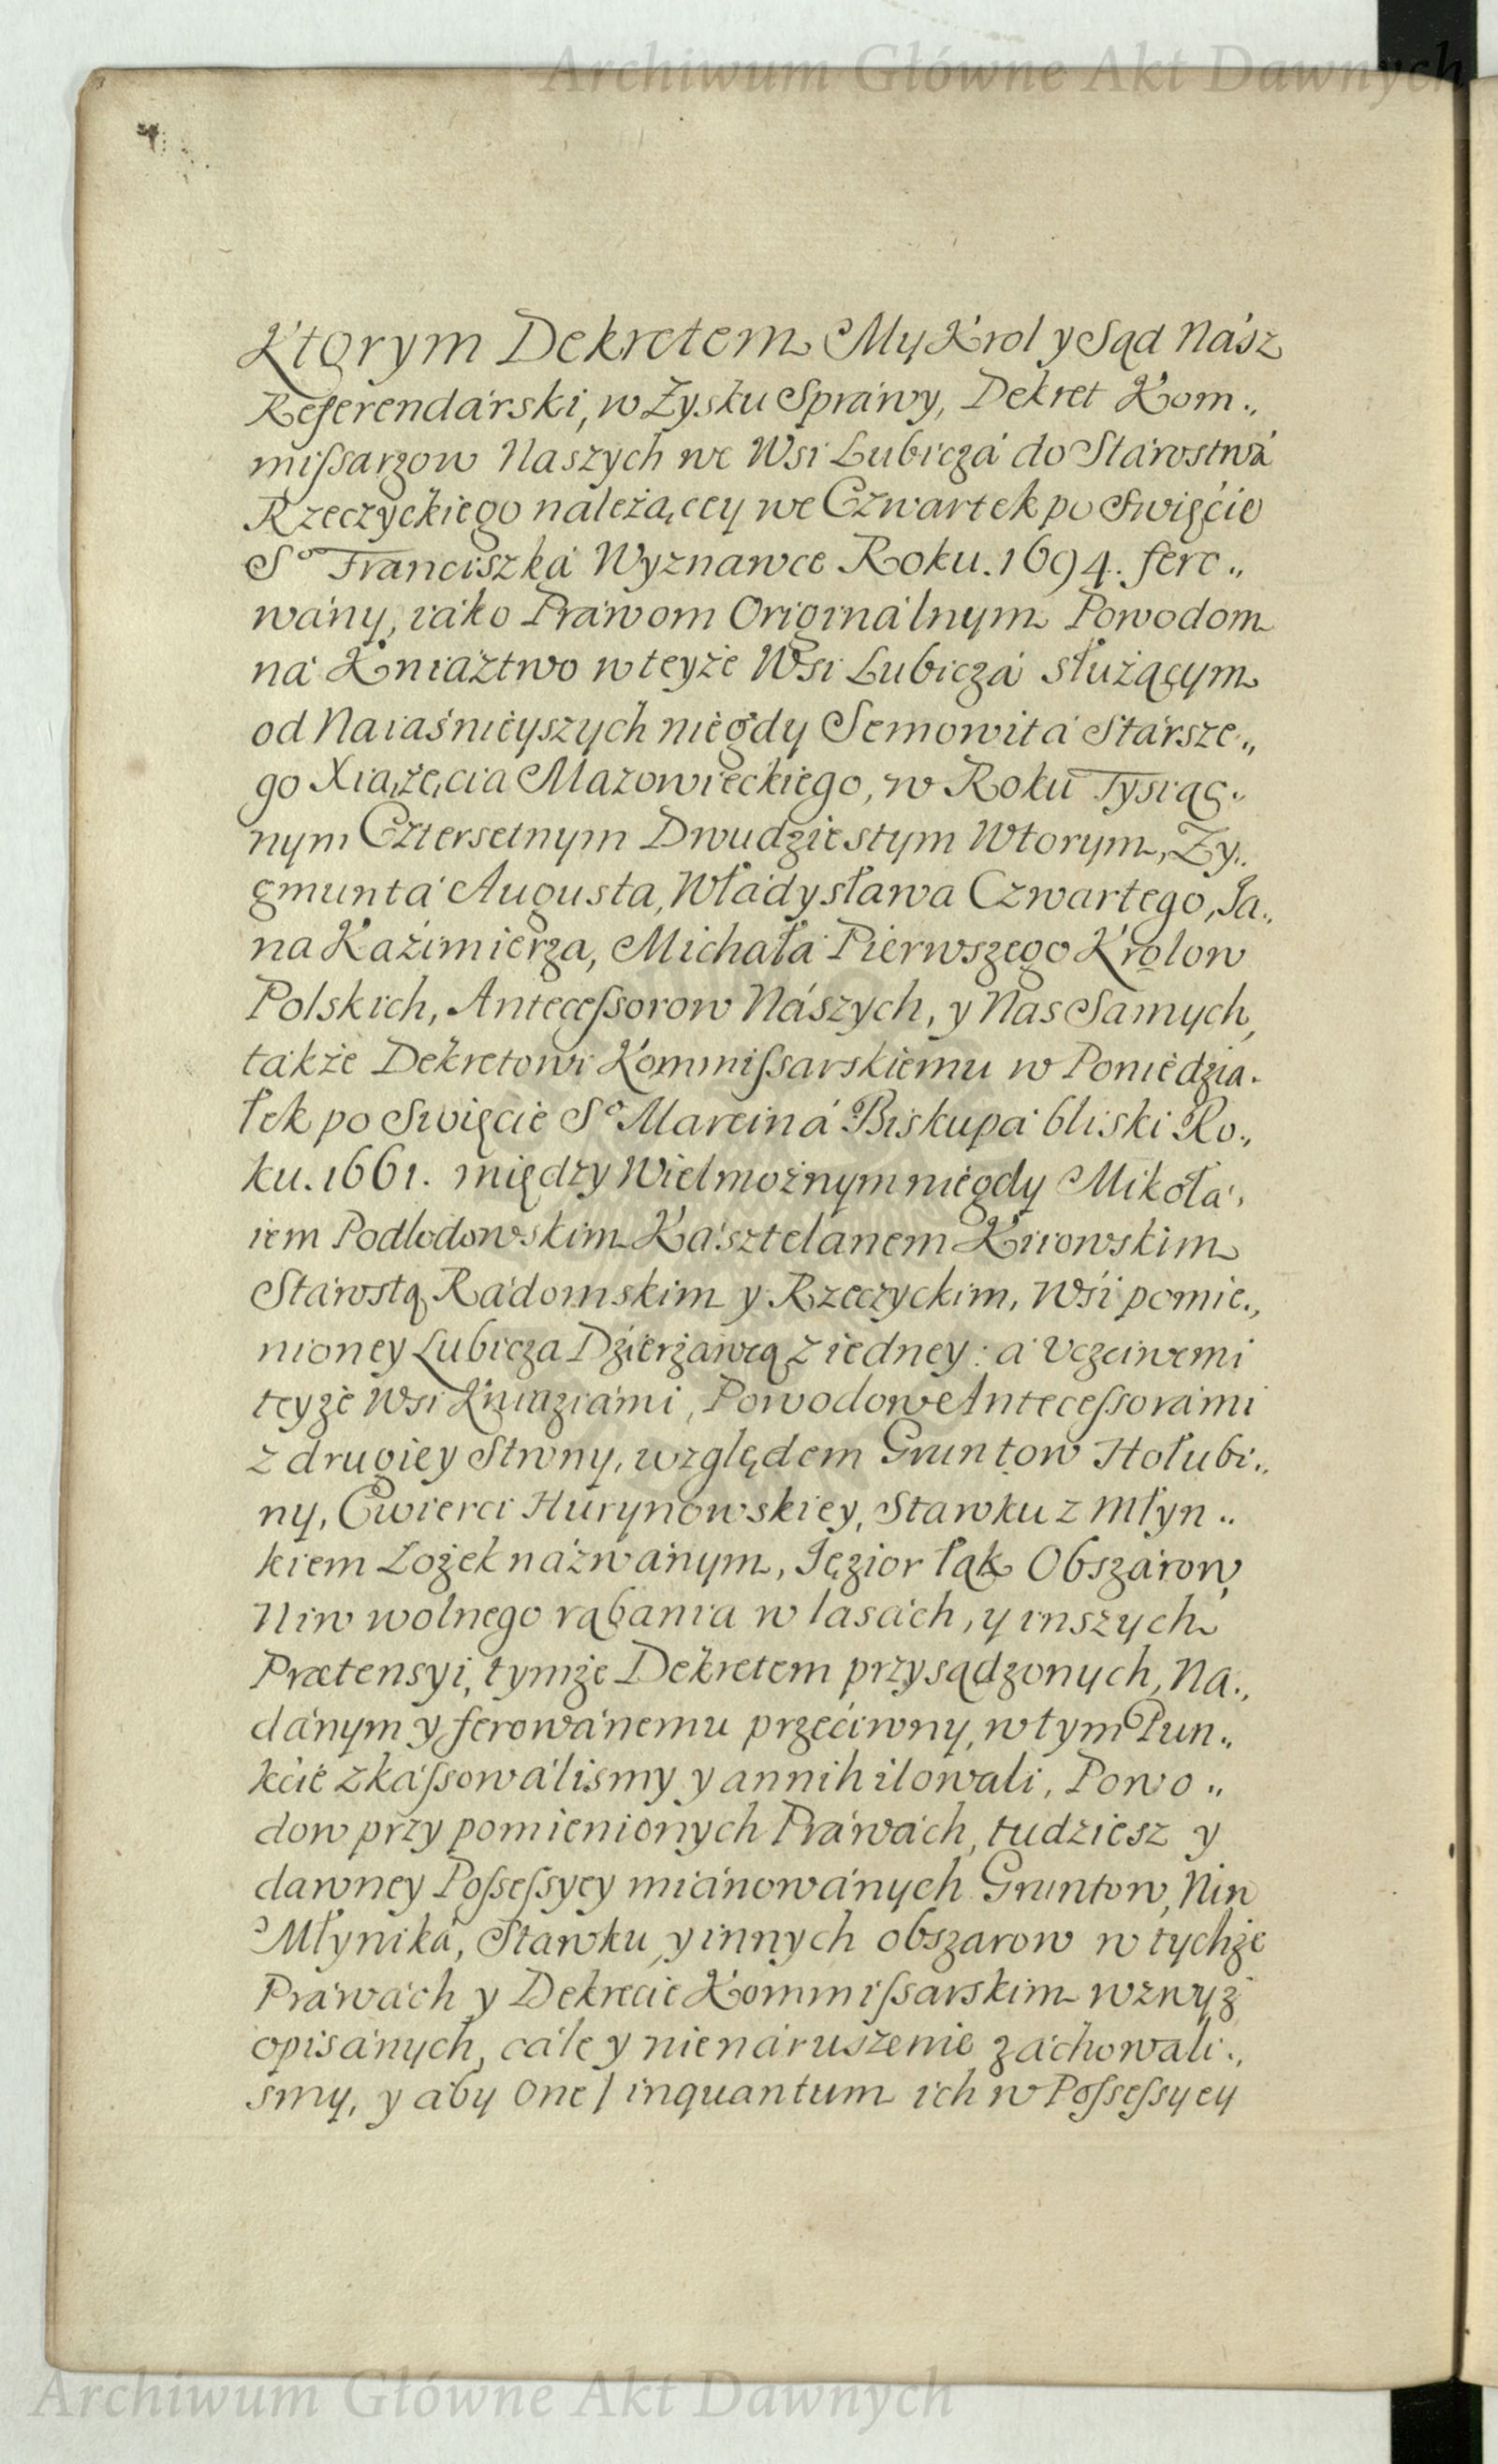 Archiwum Główne Akt Dawnych
Ktorym Dekretem My Krol y Sąd Nász
Referendárski, w Zysku Spráwy, Dekret Kom„
mißarzow Naszych we Wsi Lubiczá do Stárostwá
Rzeczyckiego należącey we Czwartek po Swięćie
Sº Franciszká Wyznawce Roku. 1694. fero„
wány, iáko Práwom Originálnym Powodom
ná Kniáztwo w teyże Wsi Lubiczá służącym
od Naiaśnieyszych niegdy Semowitá Stársze„
go Xiążęcia Mazowieckiego, w Roku Tysiąc„
nym Cztersetnym Dwudziestym Wtorym, Zy„
gmuntá Augusta, Władysława Czwartego, Ja„
na Kaźimierza, Michałá Pierwszego Krolow
Polskich, Antecessorow Nászych, y Nas Samych,
tákże Dekretowi Kommißarskiemu w Poniedzia„
łek po Swięcie Sº Marciná Biskupá bliski Ro„
ku. 1661. między Wielmożnym niegdy Mikołá„
iem Podlodowskim Kásztelanem Kiiowskim
Stárostą Rádomskim y Rzeczyckim, Wśi pomie„
nioney Lubicza Dzierżawcą z iedney: á Vczciwemi
teyże Wsi Kniaziámi, Powodow Antecessorámi
z drugiey Strony, względem Gruntow Hołubi„
ny, Cwierci Hurynowskiey, Stawku z Młyn„
kiem Lożek názwánym, Jezior łąk Obszárow,
Niw wolnego rąbania w lasách, y inszych
Prætensyi, tymże Dekretem przysądzonych, Na„
dánym y ferowánemu przećiwny, w tym Pun„
kćie zkáßowálismy y annihilowali, Powo„
dow przy pomienionych Práwách, tudziesz y
dawney Poßeßyey miánowánych Gruntow, Niw
Młyniká, Stawku, y innych obszarow w tychże
Práwách y Dekrecie Kommißarskim wzwyż
opisánych, cále y nienáruszenie záchowali„
śmy, y aby one / inquantum ich w Poßeßyey
Archiwum Główne Akt Dawnych